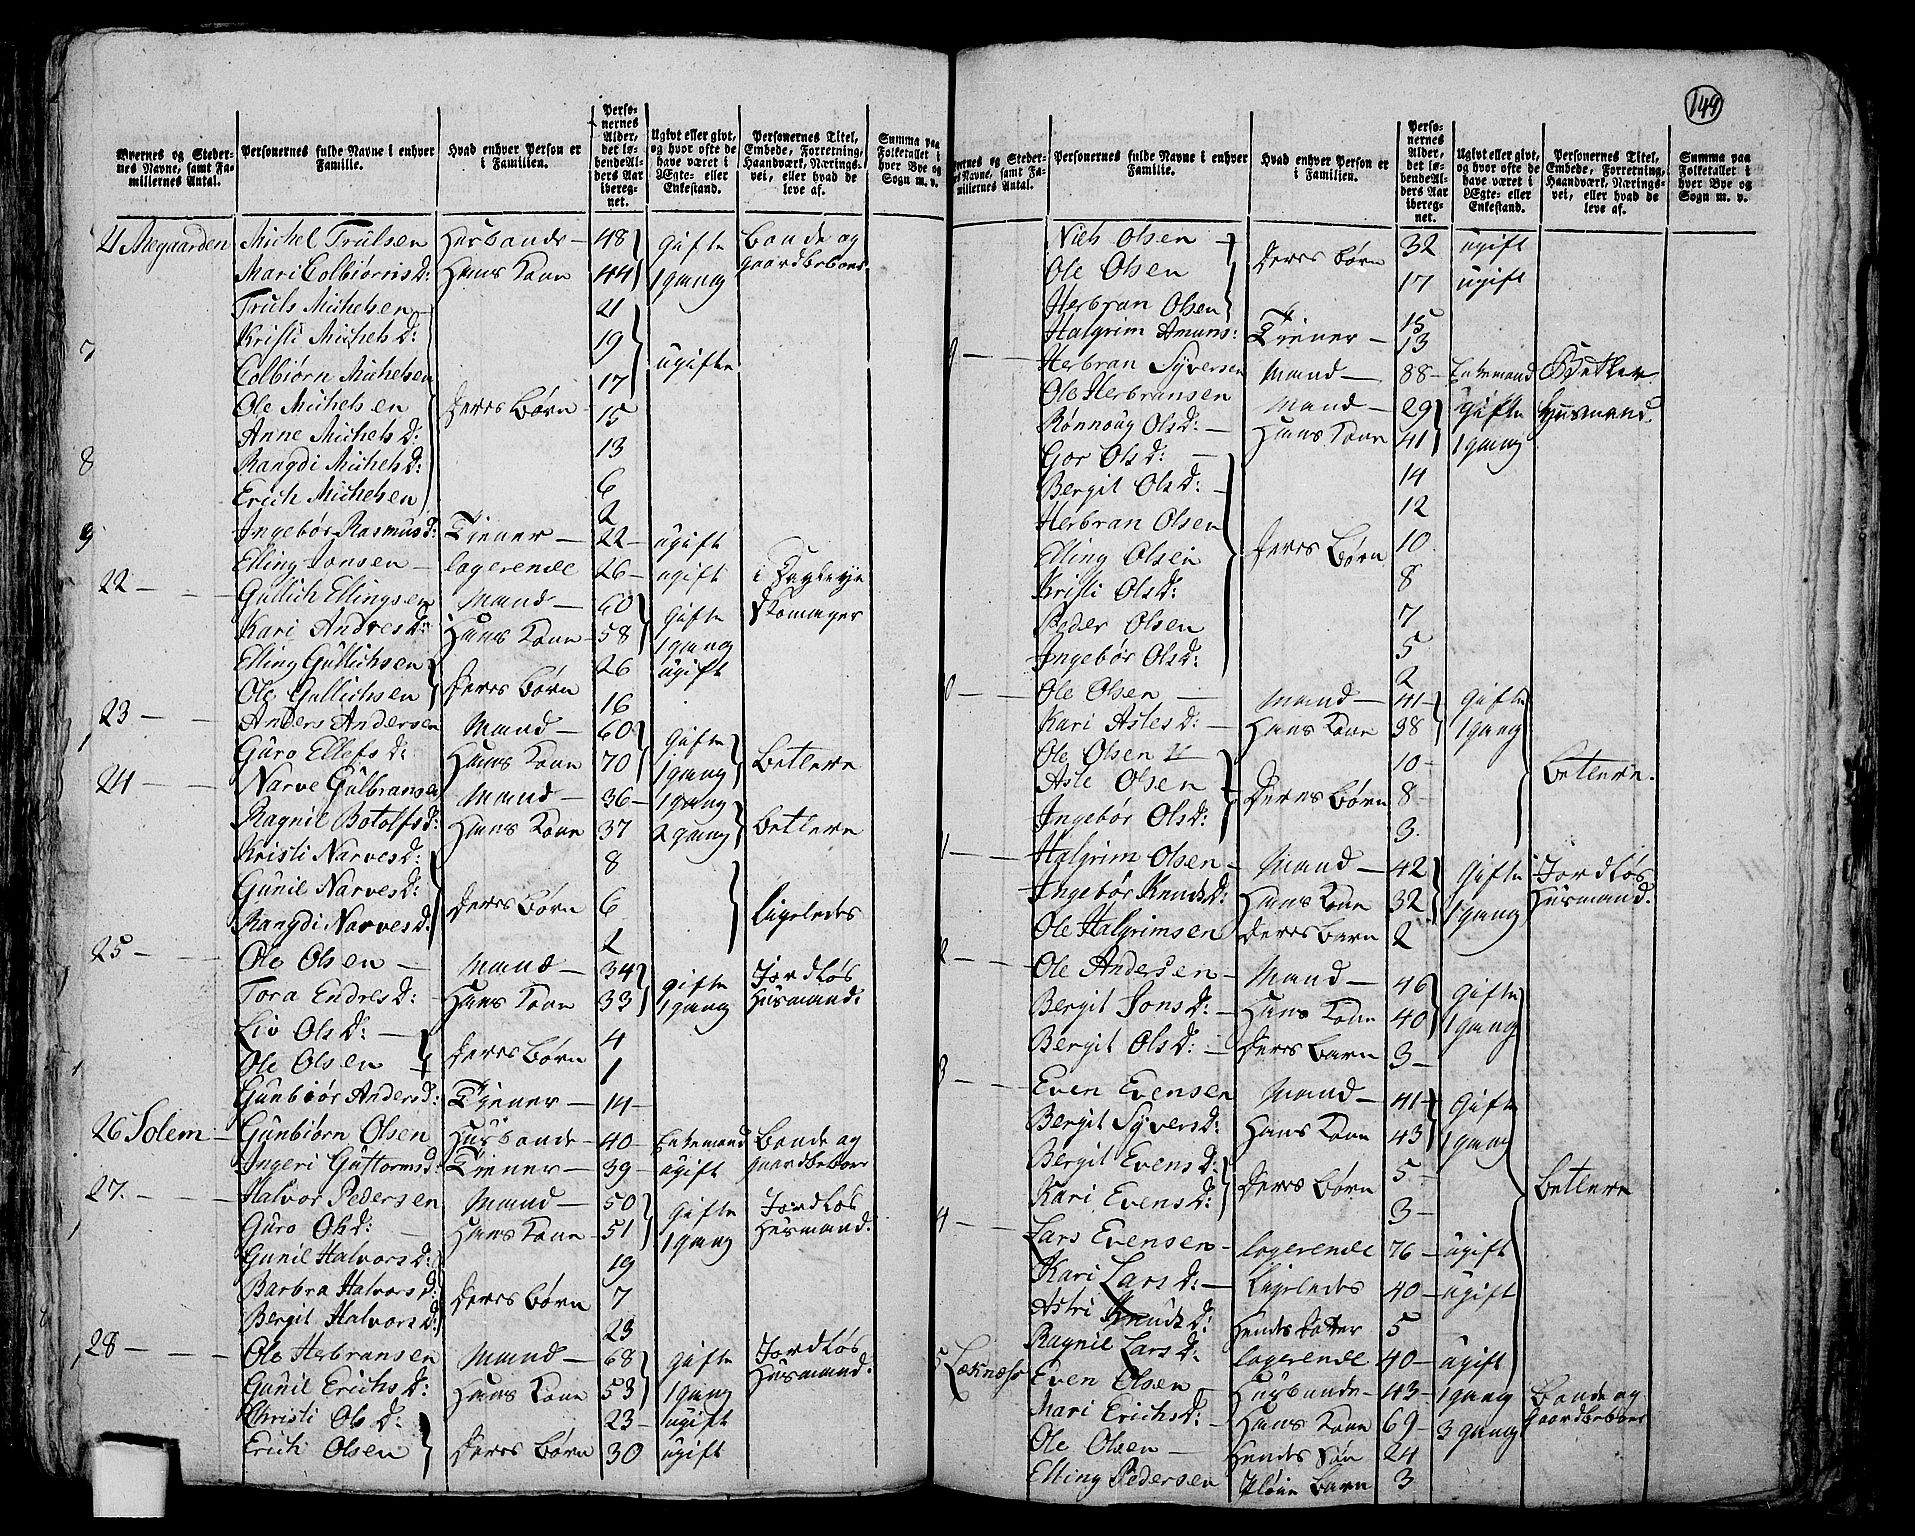 149
Byernes og Steder-
nes Navne, samt Fa-
miliernes Antal.
Personernes fulde Navne i enhver
Familie.
Hvad enhver Person er
i Familien.
Perso-
nernes
Alder,
det lø-
bende Al-
ders Aar
ibereg-
net.
Ugivt eller givt,
og hvor ofte de
have været i
Ægte- eller
Enkestand.
Personernes Titel,
Embede, Forretning,
Haandværk, Nærings-
vei, eller hvad de
leve af.
Summa paa
Folketallet i
hver Bye og
Sogn m. v.
21 Aaegaarden Michel Trulsen Husbonde 48 gifte Bonde og
Mari Colbiørnsd: Hans Kone 44 1 gang gaardbeboer
Truls Michelsen 21
Kristi Michelsd: 19 ugifte
Colbiørn Michelsen 17
Ole Michelsen deres Børn 15
Anne Michelsd: 13
Rangdi Michelsd: 6
Erich Michelsen 2
Ingebør Rasmusd: Tiener 22 ugift
Elling Jonsen logerende 26 ugift i
22 Gullich Ellingsen Mand 60 gifte Skomager
Kari Andresd: Hans Kone 58 1 gang
Elling Gullichsen 26 ugift
Ole Gullichsen deres Børn 16
23 Anders Andersen Mand 60 gifte
Guro Ellefsd: Hans Kone 70 1 gang Betlere
24 Narve Gulbransen Mand 36 1 gang
Ragnil Botolfsd: Hans Kone 37 2 gang Betlere
Kristi Narvesd: 8
Gunil Narvesd: deres Børn 6 Ligeledes
Rangdi Narvesd: 2
25 Ole Olsen Mand 34 gifte Jordløs
Tora Endresd: Hans Kone 33 1 gang Husmand:
Liv Olsd: 4
Ole Olsen deres Børn 1
Gunbiør Andersd: Tiener 14
26 Solem Gunbiørn Olsen Husbonde 40 Enkemand Bonde og
Ingeri Guttormsd: Tiener 39 ugift gaardbeboer
27. Halvor Pedersen Mand 50 gifte Jordløs
Guro Olsd: Hans Kone 51 1 gang Husmand:
Gunil Halvorsd: 19
Barbra Halvorsd: deres Børn 7
Bergit Halvorsd: 23
28 Ole Herbransen Mand 68 gifte Jordløs
Gunil Erichsd: Hans Kone 53 1 gang Husmand:
Christi Olsd: 23 ugift
Erich Olsen deres Børn 30 ugift
Byernes og Steder-
nes Navne, samt Fa-
miliernes Antal.
Personernes fulde Navne i enhver
Familie.
Hvad enhver Person er
i Familien.
Perso-
nernes
Alder,
det lø-
bende Al-
ders Aar
ibereg-
net.
Ugivt eller givt,
og hvor ofte de
have været i
Ægte- eller
Enkestand.
Personernes Titel,
Embede, Forretning,
Haandværk, Nærings-
vei, eller hvad de
leve af.
Summa paa
Folketallet i
hver Bye og
Sogn m. v.
Niels Olsen 32 ugift
Ole Olsen deres Børn 17 ugift
Herbran Olsen 15
Halgrim Amuns: Tiener 13
9 Herbran Syversen Mand 88 Enkemand
Ole Herbransen Mand 29 gifte Husmand.
Rønnoug Olsd: Hans Kone 41 1 gang
Gor Olsd: 14
Bergit Olsd: 12
Herbran Olsen 10
Elling Olsen deres Børn 8
Kristi Olsd: 7
Peder Olsen 5
Ingebør Olsd: 2
0 Ole Olsen Mand 41 gifte
Kari Aslesd: Hans Kone 38 1 gang
Ole Olsen 10 Betlere.
Asle Olsen deres Børn 8
Ingebør Olsd: 3.
1 Halgrim Olsen Mand 42 gifte Jordløs
Ingebør Knudsd: Hans Kone 32 1 gang Husmand.
Ole Halgrimsen deres Barn 2
2 Ole Andersen Mand 46 gifte
Bergit Jonsd: Hans Kone 40 1 gang
Bergit Olsd: deres Barn 3
3 Even Evensen Mand 41 gifte
Bergit Syversd: Hans Kone 43 1 gang
Bergit Evensd: 5
Kari Evensd: deres Børn 3 Betlere
4 Lars Evensen logerende 76 ugift
Kari Larsd: Ligeledes 40 ugift
Astri Knudsd: Hendes Datter 5
Ragnil Larsd: logerende 40 ugift
5 Even Olsen Husbonde 43 1 gang Bonde og
Mari Erichsd: Hans Kone 69 3 gang gaardbeboer
Ole Olsen Hendes Søn 24
Elling Pedersen Pleie Barn 3